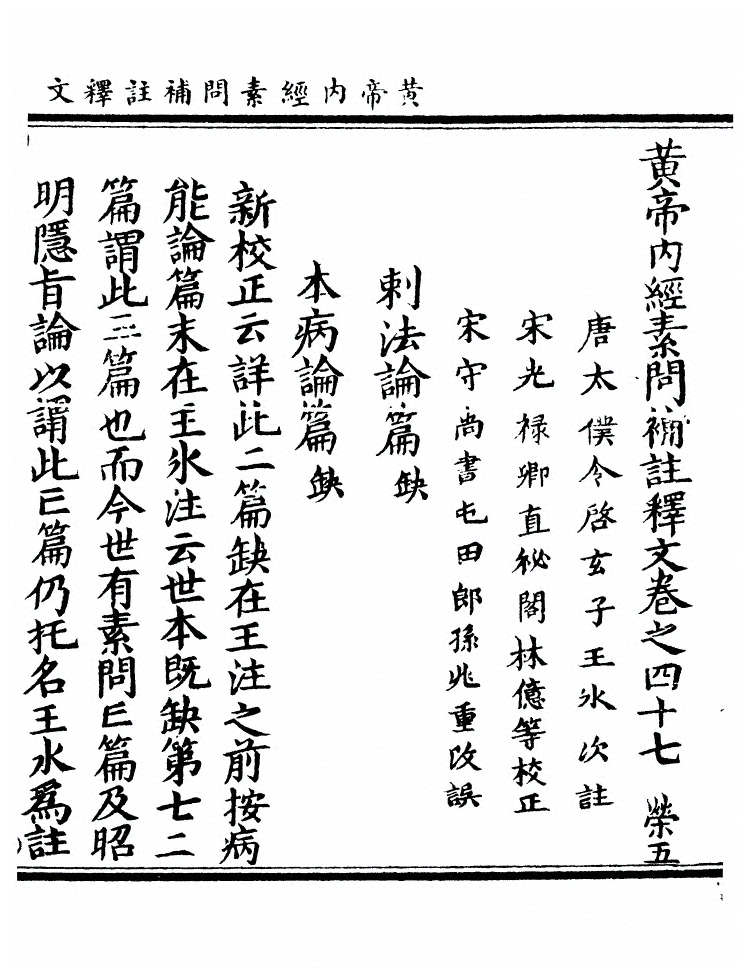 黄帝内經素問補註釋文
黄帝内經素問補註釋文卷之四十七 榮五
唐太僕令啓玄子王氷次註
宋光禄卿直秘閣林億等校正
宋守尚書屯田郎孫兆重改誤
刺法論篇缺
本病論篇缺
新校正云詳此二篇缺在王注之前按病
能論篇末在王氷注云世本既缺第七二
篇謂此三篇也而今世有素問亡篇及昭
明隱旨論以謂此亡篇仍托名王氷爲註